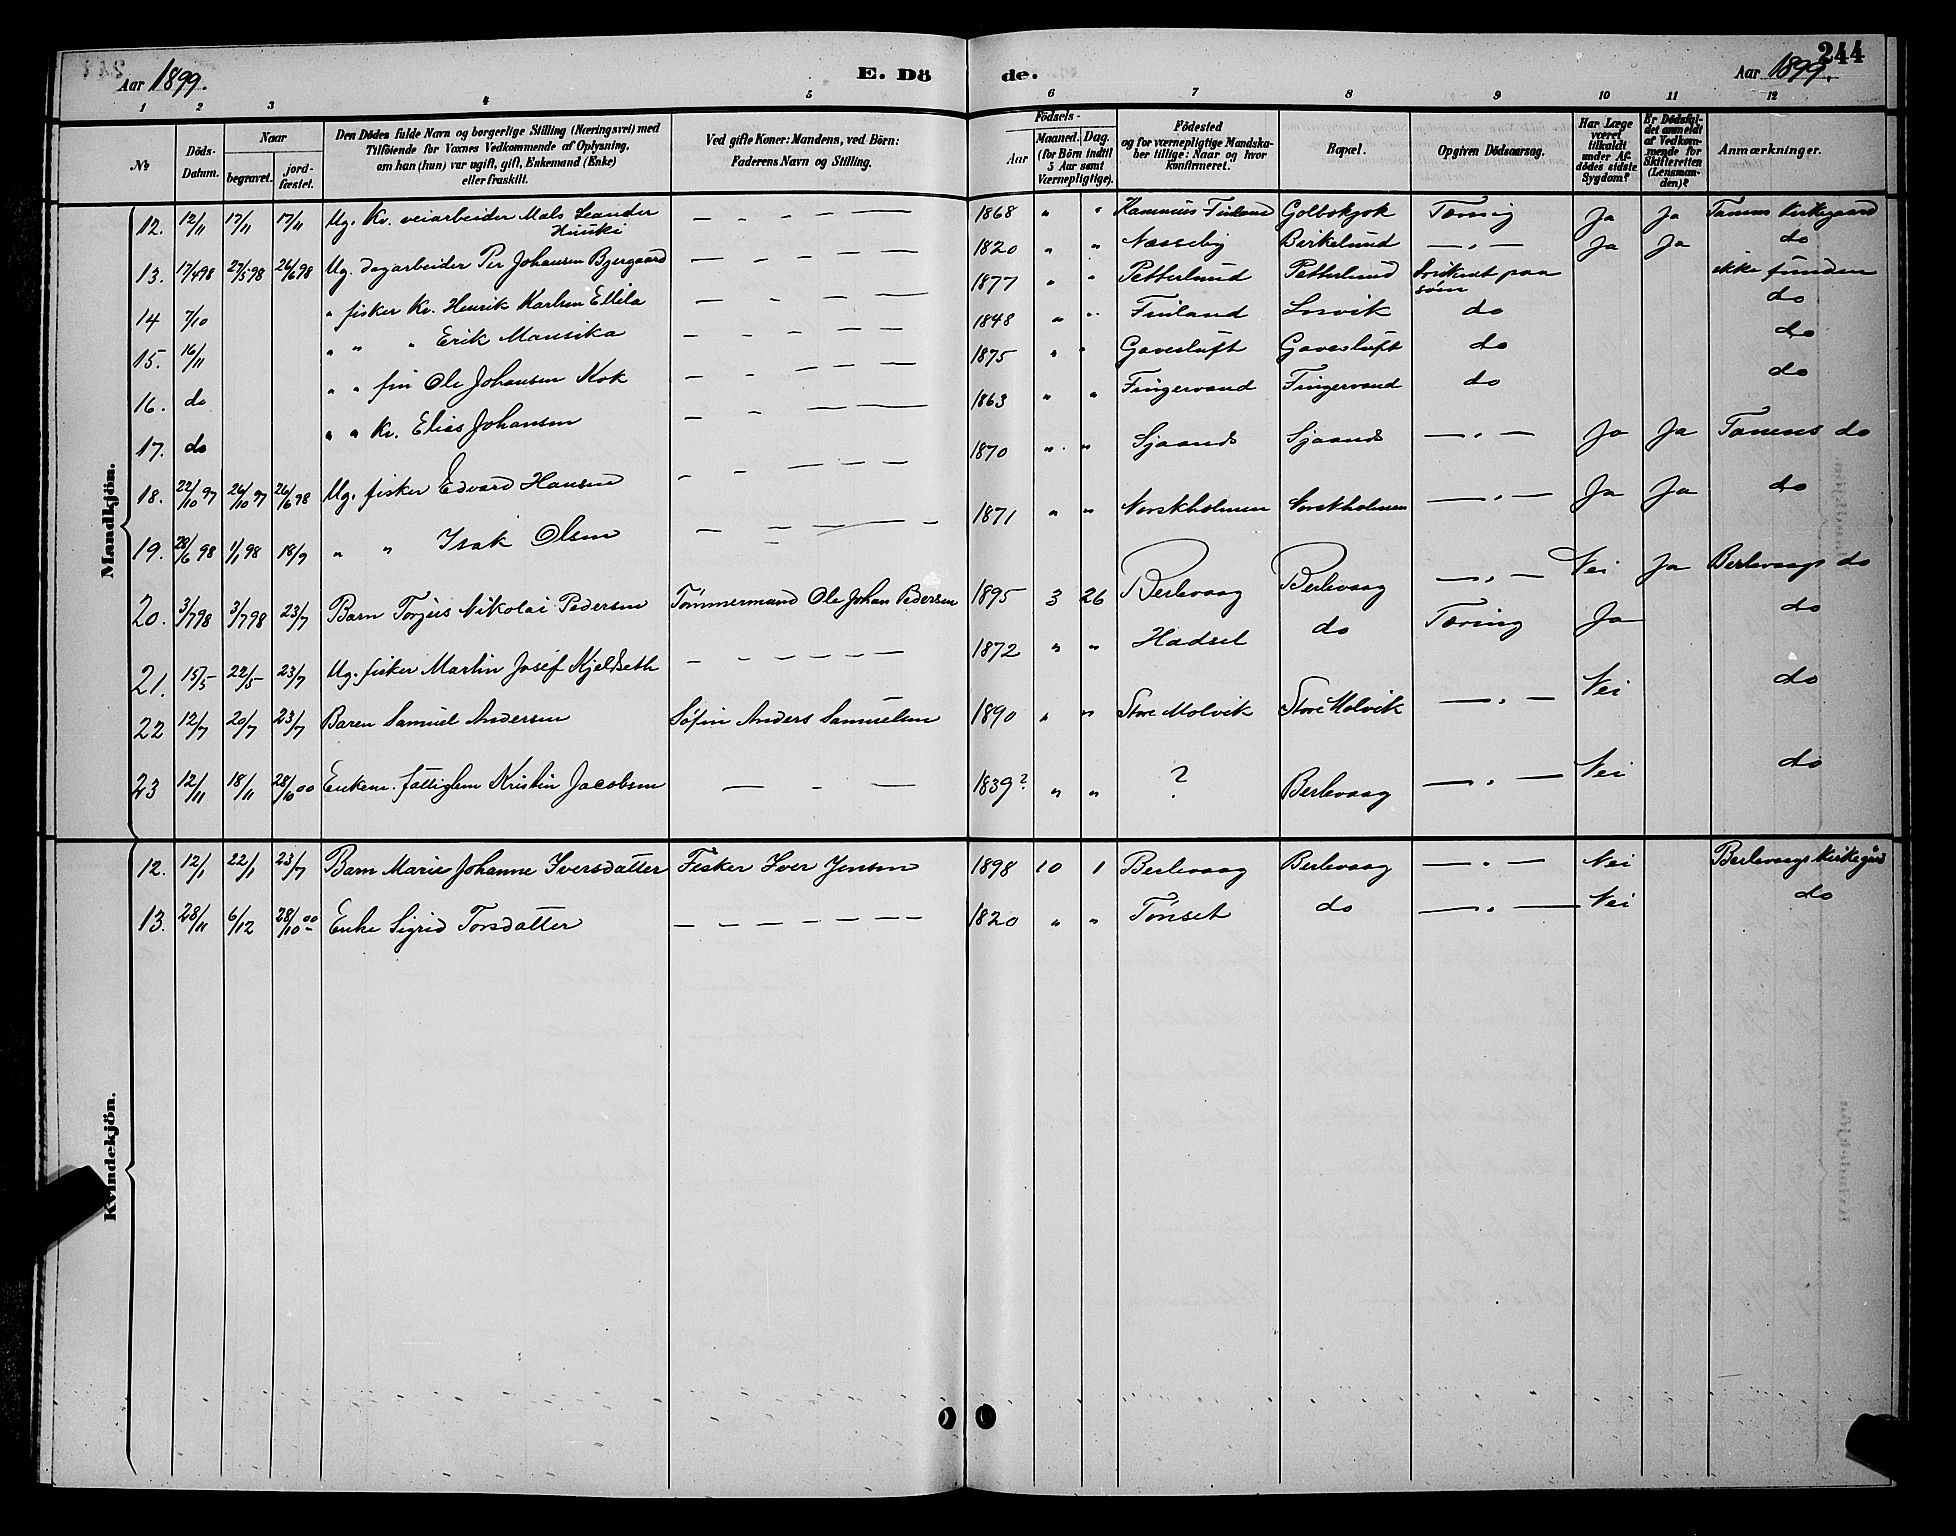 244
Aar 1899. E. Dö de. Aar 1899.
1 2 3 4 5 6 7 8 9 10 11 12
№
Döds-Datum.
Naar
begravet.
jord-fæstet.
Den Dödes fulde Navn og borgerlige Stilling (Næringsvei) med
Tilföiende for Voxnes Vedkommende af Oplysning,
om han (hun) var ugift, gift, Enkemand (Enke)
eller fraskilt.
Ved gifte Koner: Mandens, ved Börn:
Faderens Navn og Stilling.
Födsels-
Aar
Maaned. Dag.
(for Börn indtil
5 Aar samt
Værnepligtige).
Födested
og for værnepligtige Mandska-
ber tillige: Naar og hvor
konfirmeret.
Bopæl.
Opgiven Dödsaarsag.
Har Læge
været
tilkaldt
under Af-
dödes sidste
Sygdom?
Er Dödsfal-
det anmeldt
af Vedkom-
mende for
Skifteretten
(Lensman-
den)?
Anmærkninger.
Mandkjön.
12. 12/11 17/11 17/11 Ug. Kv. veiarbeider Mals Leander Huuki — — — — — 1868 " " Finland Golbokjok Tæring Ja Ja Tanens Kirkegaard
13. 17/4 98 27/5 98 26/6 98 Ug. dagarbeider Per Johansen Bjergaard — — — — — 1820 " " Nesseby Birkelund — " — Ja Ja do
14 7/10 " fisker Kv. Henrik Karlsen Ellila — — — — 1877 " " Petterlund Petterlund Druknet paa söen ikke funden
15. 16/11 " " " Erik Mansika — — — — — 1848 " " Finland Losvik do do
16. do " " fin Ole Johansen Kok — — — — — 1875 " " Gavesluft Gavesluft do do
17. do " " Kv. Elias Johansen — — — — 1863 " " Fingervand Fingervand do do
18. 22/10 97 26/10 97 26/6 98 Ug. fisker Edvard Hansen — — — — — 1870 " " Sjaanes Sjaanes — " — Ja Ja Tanens do
19. 28/6 98 1/1 98 18/7 " " Isak Olsen — — — — — 1871 " " Norskholmen Norskholmen — " — Ja Ja do
20. 3/7 98 3/7 98 23/7 Barn Torjus Nikolai Pedersen Tømmermand Ole Johan Pedersen 1895 3 26 Berlevaag Berlevaag — " — Nei Ja Berlevaags do
21. 15/5 22/5 23/7 Ug. fisker Martin Josef Kjeldseth — — — — — 1872 " " Hadsel do Tæring Ja do
22 12/7 20/7 23/7 Baren Samuel Andersen Søfin Anders Samuelsen 1890 " " Store Molvik Store Molvik — " — Nei do
23 12/11 18/11 28/10 00 Enkem. fattiglem Kristin Jacobsen — - — 1839? " " ? Berlevaag — " — Nei do
Kvindekjön.
12. 12/1 22/1 23/7 Barn Marie Johanne Iversdatter Fisker Iver Jensen 1898 10 1 Berlevaag Berlevaag — " — Nei Berlevaags Kirkegård
13. 28/11 6/12 28/10 00 Enke Sigrid Torsdatter — — — — — — 1820 " " Tønset do — " — Nei do